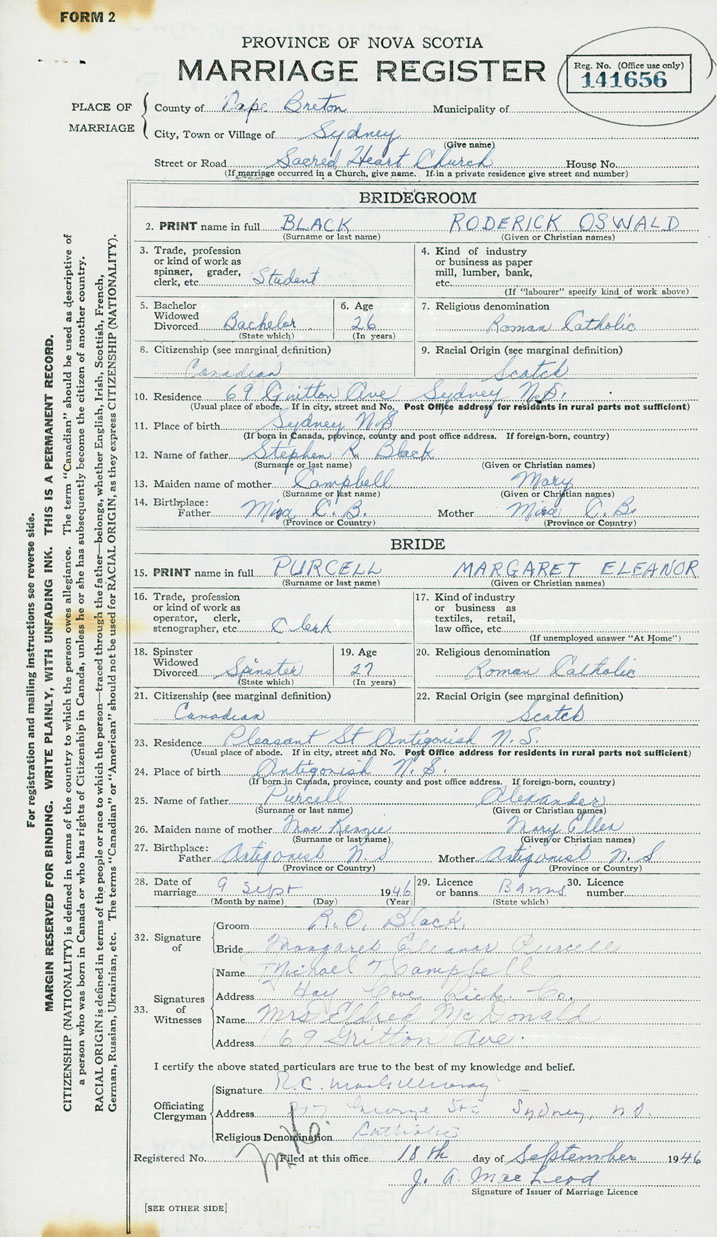 FORM 2
PROVINCE OF NOVA SCOTIA
MARRIAGE REGISTER
Reg. No. (Office use only)
141656
PLACE OF MARRIAGE
County of Cape Breton Municipality of
City, Town or Village of Sydney
(Give name)
Street or Road Sacred Heart Church House No.
(If marriage occurred in a Church, give name. If in a private residence give street and number)
BRIDEGROOM
2. PRINT name in full BLACK RODERICK OSWALD
(Surname or last name) (Given or Christian names)
3. Trade, profession or kind of work as spinner, grader, clerk, etc. Student
4. Kind of industry or business as paper mill, lumber, bank, etc.
(If "labourer" specify kind of work above)
5. Bachelor Widowed Divorced Bachelor
(State which)
6. Age 26
(In years)
7. Religious denomination
Roman Catholic
8. Citizenship (see marginal definition)
Canadian
9. Racial Origin (see marginal definition)
Scotch
10. Residence 69 Gritton Ave Sydney N.S.
(Usual place of abode. If in city, street and No. Post Office address for residents in rural parts not sufficient)
11. Place of birth Sydney N.S
(If born in Canada, province, county and post office address. If foreign-born, country)
12. Name of father Stephen R. Black
(Surname or last name) (Given or Christian names)
13. Maiden name of mother Campbell Mary
(Surname or last name) (Given or Christian names)
14. Birthplace: Father Mira C.B. Mother Mira C.B.
(Province or Country) (Province or Country)
BRIDE
15. PRINT name in full PURCELL MARGARET ELEANOR
(Surname or last name) (Given or Christian names)
16. Trade, profession or kind of work as operator, clerk, stenographer, etc. Clerk
17. Kind of industry or business as textiles, retail, law office, etc.
(If unemployed answer "At Home")
18. Spinster Widowed Divorced Spinster
(State which)
19. Age 27
(In years)
20. Religious denomination
Roman Catholic
21. Citizenship (see marginal definition)
Canadian
22. Racial Origin (see marginal definition)
Scotch
23. Residence Pleasant St Antigonish N.S.
(Usual place of abode. If in city, street and No. Post Office address for residents in rural parts not sufficient)
24. Place of birth Antigonish N.S.
(If born in Canada, province, county and post office address. If foreign-born, country)
25. Name of father Purcell Alexander
(Surname or last name) (Given or Christian names)
26. Maiden name of mother MacKenzie Mary Ellen
(Surname or last name) (Given or Christian names)
27. Birthplace: Father Antigonish N.S Mother Antigonish N.S.
(Province or Country) (Province or Country)
28. Date of marriage 9 Sept 1946
(Month by name) (Day) (Year)
29. Licence or banns Banns
(State which)
30. Licence number
32. Signature of
Groom R.O. Black.
Bride Margaret Eleanor Purcell
33. Signatures of Witnesses
Name Michael T Campbell
Address Hay Cove Rich. Co.
Name Mrs Eldred McDonald
Address 69 Gritton Ave.
I certify the above stated particulars are true to the best of my knowledge and belief.
Officiating Clergyman
Signature R.C.
Address George St. Sydney, N.S.
Religious Denomination Catholic
Registered No. Filed at this office 18th day of September 1946
J. A. MacLeod
Signature of Issuer of Marriage Licence
[SEE OTHER SIDE]
For registration and mailing instructions see reverse side.
MARGIN RESERVED FOR BINDING. WRITE PLAINLY, WITH UNFADING INK. THIS IS A PERMANENT RECORD.
CITIZENSHIP (NATIONALITY) is defined in terms of the country to which the person owes allegiance. The term "Canadian" should be used as descriptive of
a person who was born in Canada or who has rights of Citizenship in Canada, unless he or she has subsequently become the citizen of another country.
RACIAL ORIGIN is defined in terms of the people or race to which the person—traced through the father—belongs, whether English, Irish, Scottish, French,
German, Russian, Ukrainian, etc. The terms "Canadian" or "American" should not be used for RACIAL ORIGIN, as they express CITIZENSHIP (NATIONALITY).